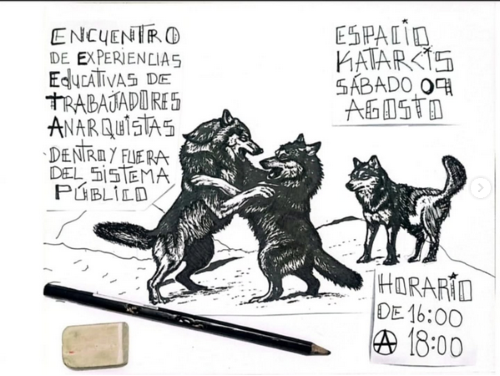 ENCUENTRO
DE EXPERIENCIAS
EDUCATIVAS DE
TRABAJADORES
ANARQUISTAS
DENTRO Y FUERA
DEL SISTEMA
PÚBLICO
ESPACIO
KATARCIS
SÁBADO 09
AGOSTO
HORARIO
DE 16:00
A 18:00